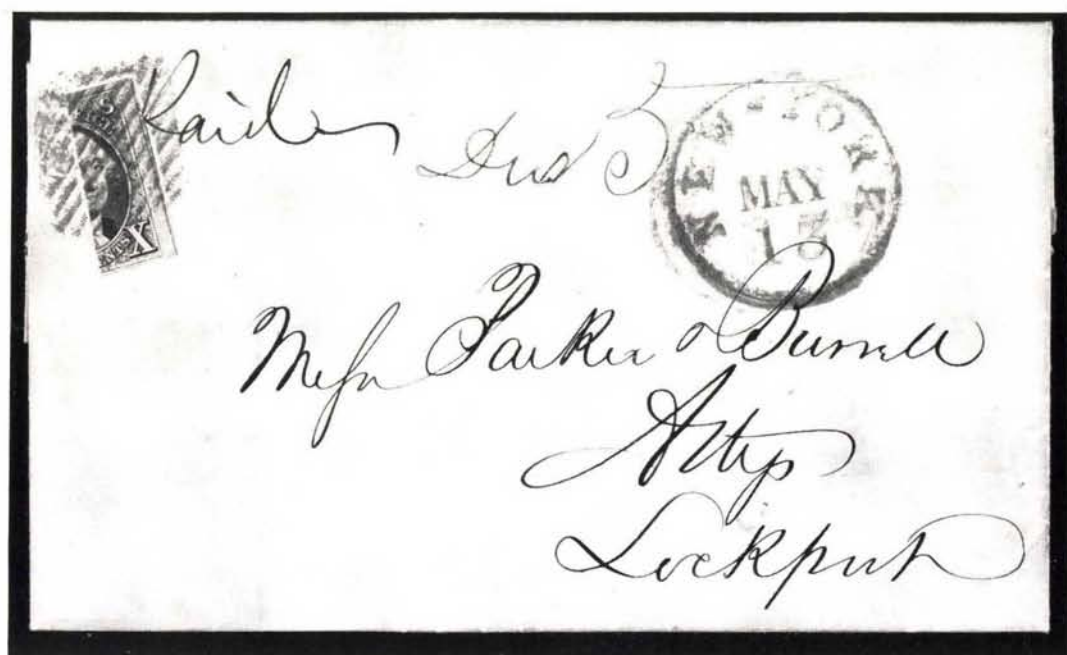 Paid
Due 5
NEW-YORK
MAY
13
X
Messrs Parker & Burrell
Attys
Lockport